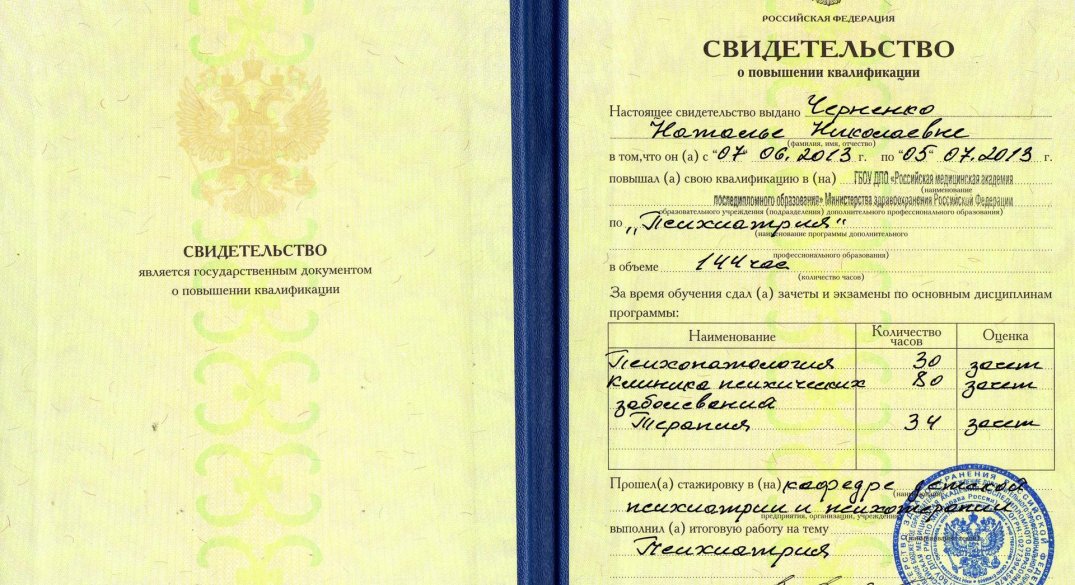 СВИДЕТЕЛЬСТВО
является государственным документом
о повышении квалификации
РОССИЙСКАЯ ФЕДЕРАЦИЯ
СВИДЕТЕЛЬСТВО
о повышении квалификации
Настоящее свидетельство выдано Черненко
Наталье Николаевне
(фамилия, имя, отчество)
в том,что он (а) с "07" 06. 2013 г. по "05" 07.2013 г.
повышал (а) свою квалификацию в (на) ГБОУ ДПО «Российская медицинская академия
(наименование
последипломного образования» Министерства здравоохранения Российской Федерации
образовательного учреждения (подразделения) дополнительного профессионального образования)
по „Психиатрия"
(наименование программы дополнительного
профессионального образования)
в объеме 144 час
(количество часов)
За время обучения сдал (а) зачеты и экзамены по основным дисциплинам
программы:
Наименование Количество часов Оценка
Психопатология 30 зачет
Клиника психических 80 зачет
заболевания
Терапия 34 зачет
Прошел(а) стажировку в (на) кафедре детской
(наименование
психиатрии и психотерапии
предприятия, организации, учреждения)
выполнил (а) итоговую работу на тему
Психиатрия